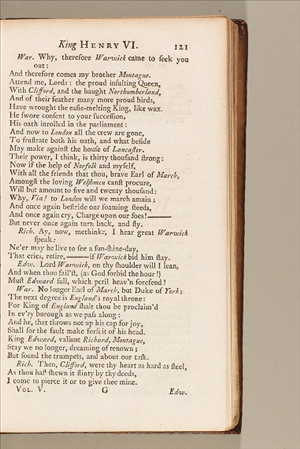 King HENRY VI. 121
War. Why, therefore Warwick came to seek you
out:
And therefore comes my brother Montague.
Attend me, Lords: the proud insulting Queen,
With Clifford, and the haught Northumberland,
And of their feather many more proud birds,
Have wrought the easie-melting King, like wax.
He swore consent to your succession,
His oath inrolled in the parliament:
And now to London all the crew are gone,
To frustrate both his oath, and what beside
May make against the house of Lancaster.
Their power, I think, is thirty thousand strong:
Now if the help of Norfolk and myself,
With all the friends that thou, brave Earl of March,
Amongst the loving Welshmen canst procure,
Will but amount to five and twenty thousand:
Why, Via! to London will we march amain;
And once again bestride our foaming steeds,
And once again cry, Charge upon our foes!——
But never once again turn back, and fly.
Rich. Ay, now, methinks, I hear great Warwick
speak:
Ne'er may he live to see a sun-shine-day,
That cries, retire,——if Warwick bid him stay.
Edw. Lord Warwick, on thy shoulder will I lean,
And when thou fail'st, (as God forbid the hour!)
Must Edward fall, which peril heav'n forefend!
War. No longer Earl of March, but Duke of York;
The next degree is England's royal throne:
For King of England shalt thou be proclaim'd
In ev'ry borough as we pass along:
And he, that throws not up his cap for joy,
Shall for the fault make forfeit of his head.
King Edward, valiant Richard, Montague,
Stay we no longer, dreaming of renown;
But sound the trumpets, and about our task.
Rich. Then, Clifford, were thy heart as hard as steel,
As thou hast shewn it flinty by thy deeds,
I come to pierce it or to give thee mine.
VOL. V. G Edw.